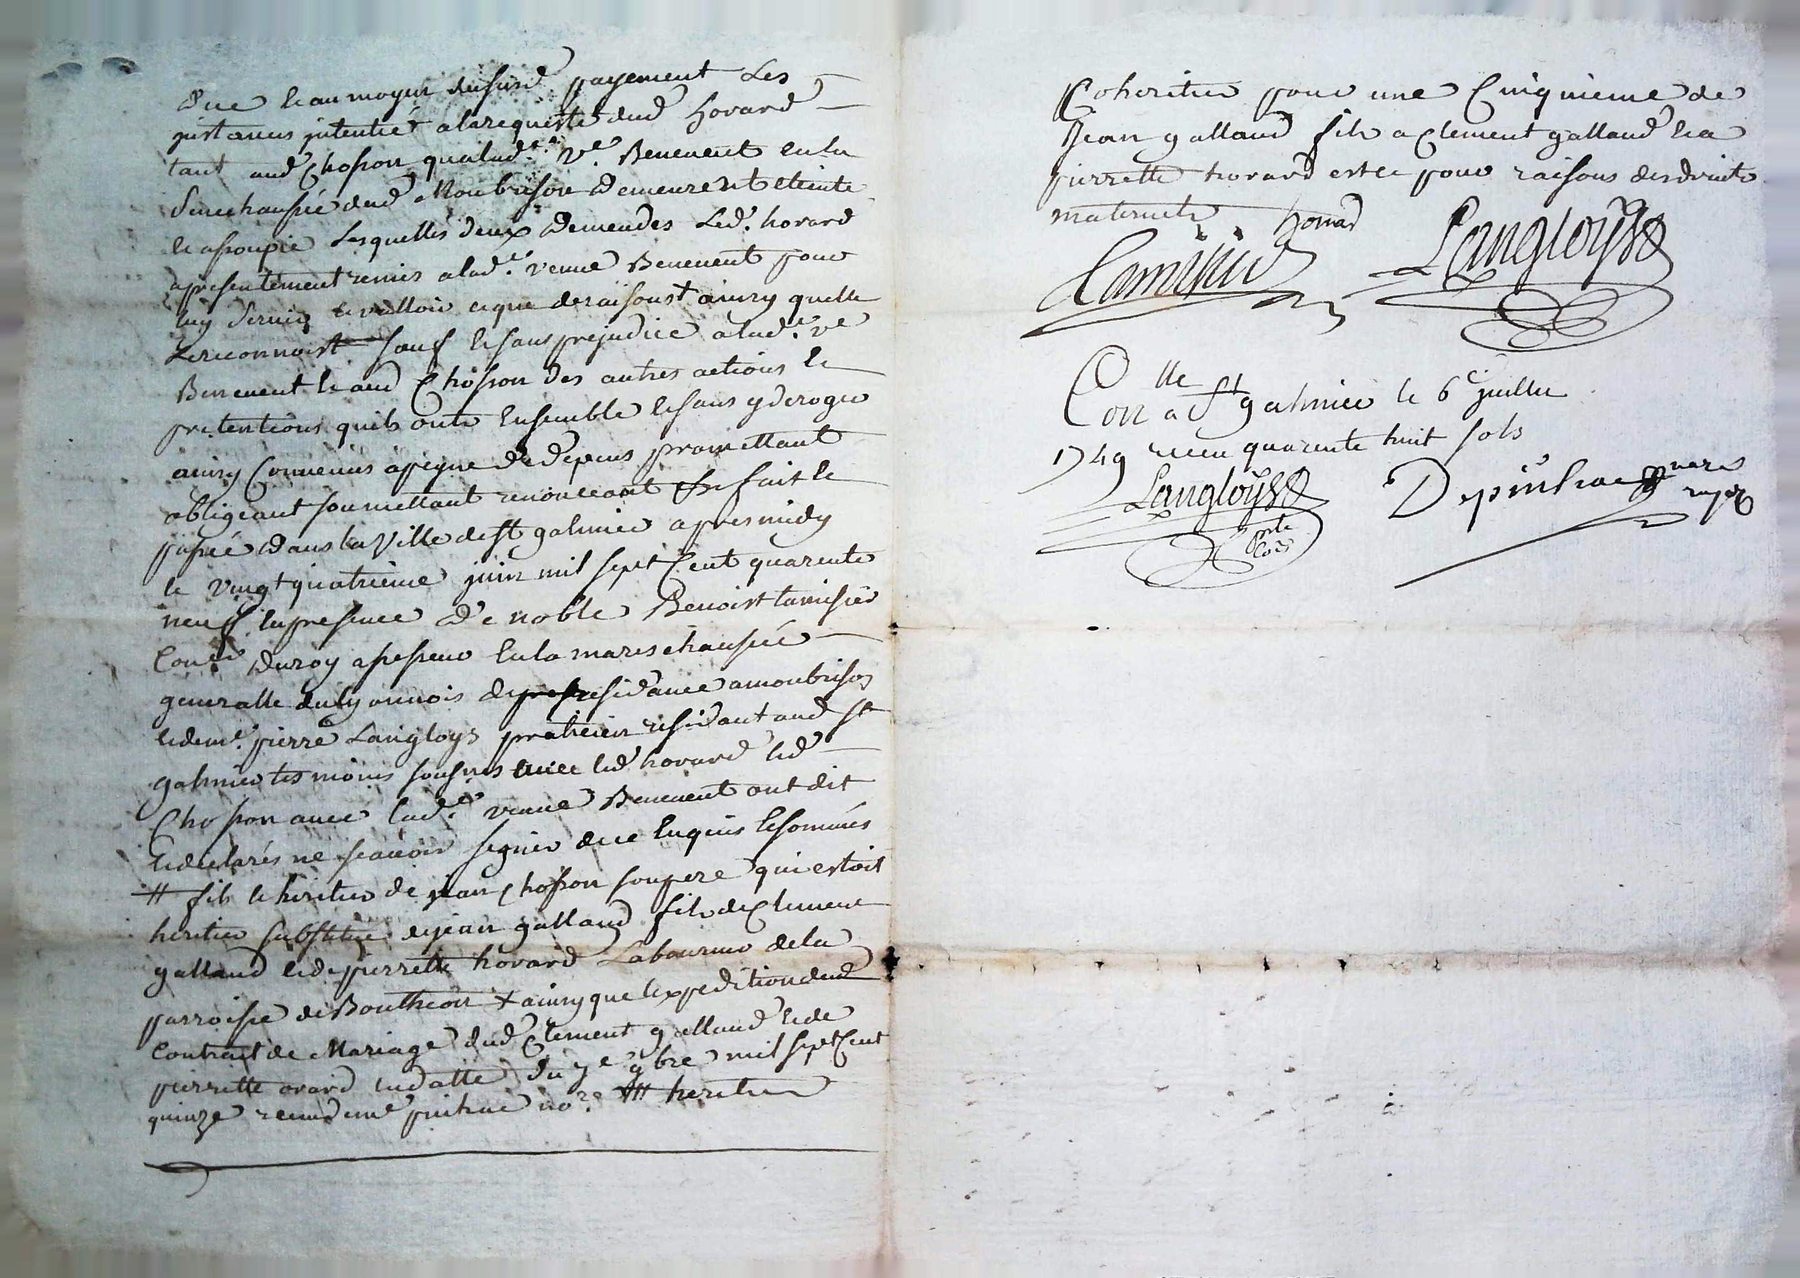 que et au moyen dusurd. payement Les
jnstances jntentées a la requeste dud horard
tant aud Chosson qua lad.te ve. Benevent en la
Senechaussée dud Monbrison Demeurent eteinte
et assoupie Lesquelles deux Demendes Led. horard
a presentement remis a lad.e veuve Benevent pour
luy Servir et valloir ce que de raisons + ainsy quelle
Le reconnoist sauf et sans prejudice a lad.e ve
Benevent et aud Chosson des autres actions et
pretentions quils onts Ensemble et sans y deroger
ainsy Convenus a peyne de depens promettant
obligeant soumettant renonceant &c fait et
passé Dans la Ville de st galmier apres midy
le vingt quatrieme juin mil sept Cent quarente
neuf En presence De noble Benoist tamisier
Con.er Du roy assesseur En la mareschaussée
generalle du lyonnois de residance a monbrison
et de me. pierre Langloys praticien residant aud st
galmier tesmoins sousnes avec led horard led
Chosson avec lad.e veuve Benevent ont dit
et declarés ne scavoir signer de ce Enquis et sommés
# fils et heritier de jean Chosson son pere qui estoit
heritier substitué de jean galland fils de Clement
galland et de pierrette horard Laboureur de la
parroisse de Boutheon + ainsy que lexpedition dud
Contract de Mariage dud Clement galland et de
pierrette orard en datte du 7e 9bre mil sept Cent
quinze receu de me punhac no.re # heritier
Coheritier pour une Cinquieme de
Jean galland fils a Clement galland et a
pierrette horard et ce pour raisons des droits
maternels horard
Tamisier Langloys
Con.lle a St galmier le 6e juillet
1749 receu quarente huit sols
Langloys Depunhac